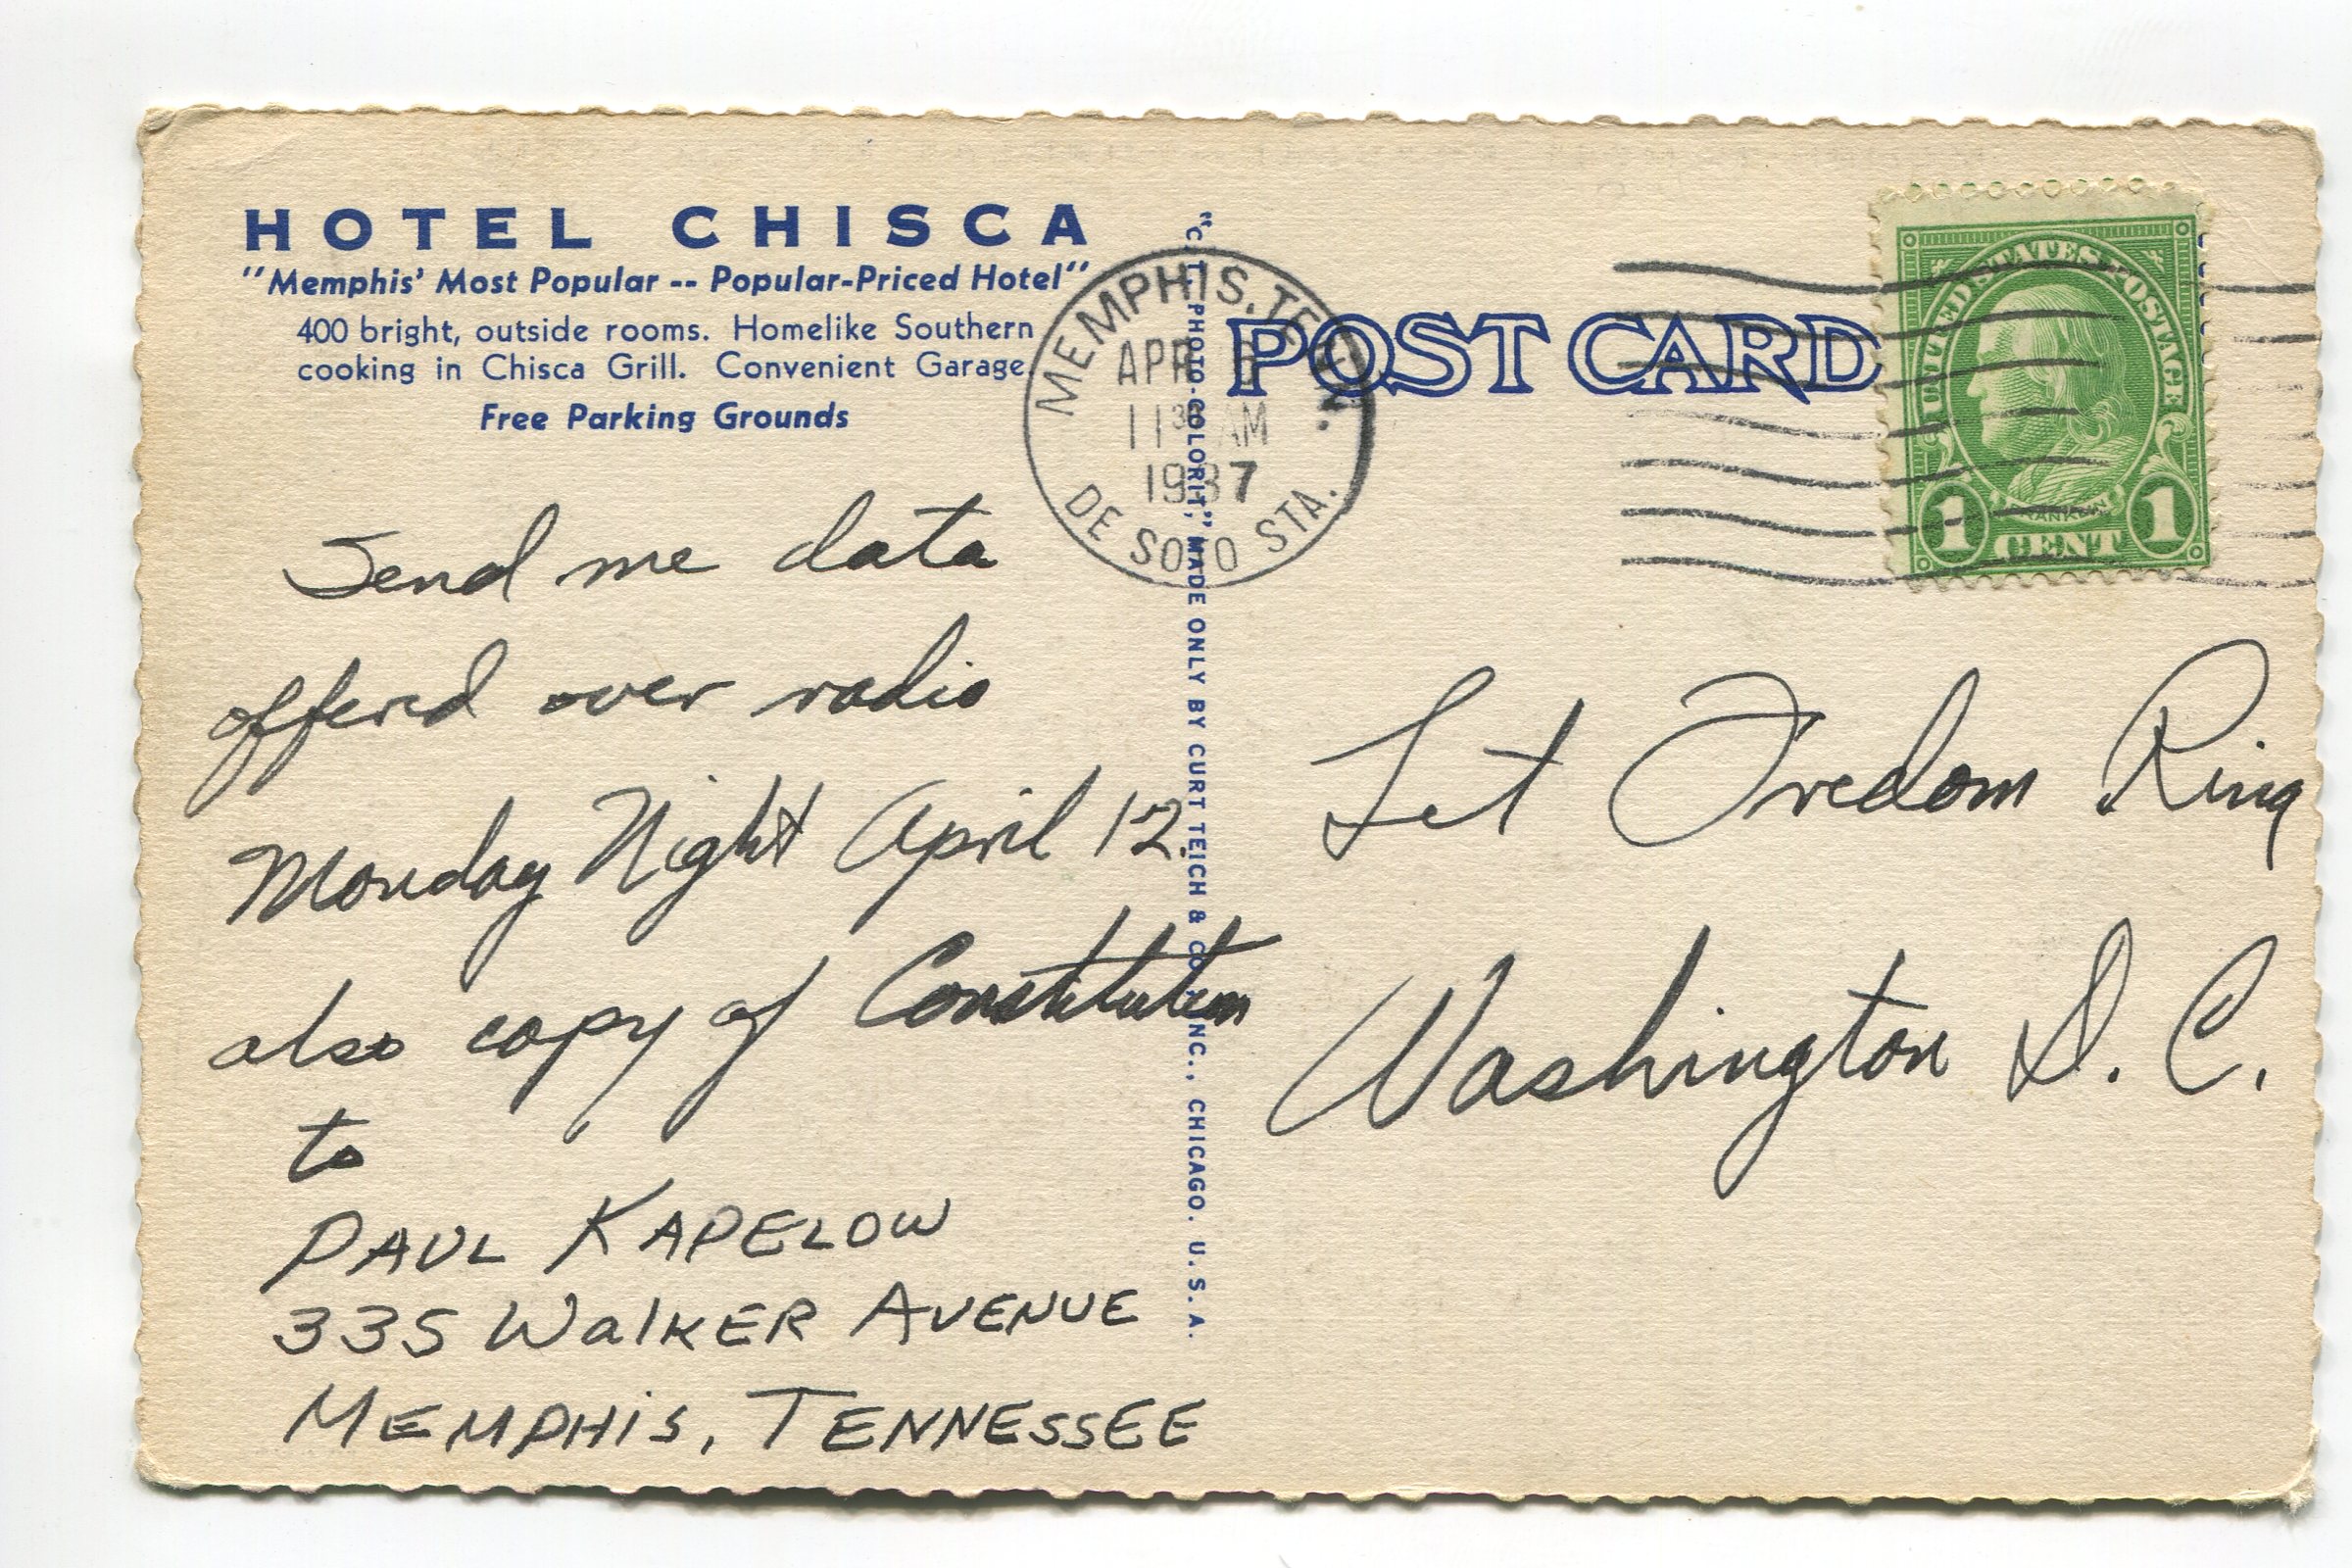 HOTEL CHISCA
"Memphis' Most Popular -- Popular-Priced Hotel"
400 bright, outside rooms. Homelike Southern
cooking in Chisca Grill. Convenient Garage.
Free Parking Grounds
Send me data
offered over radio
Monday Night April 12.
also copy of Constitution
to
PAUL KAPELOW
335 WalKER AVENUE
MEMPHiS, TENNESSEE
"C.T. PHOTO-COLORIT," MADE ONLY BY CURT TEICH & CO., INC., CHICAGO. U.S.A.
MEMPHIS, TENN.
APR
11 30 AM
1937
DE SOTO STA.
POST CARD
UNITED STATES POSTAGE
FRANKLIN
1 CENT 1
Let Fredom Ring
Washington D. C.